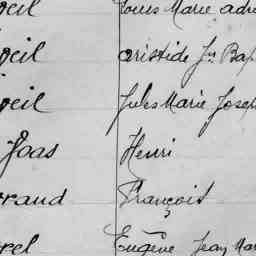 oeil Louis Marie adr
oeil Aristide Jn Bap
oeil Jules Marie Josep
Joas Henri
raud François
rel Eugène Jean Mar